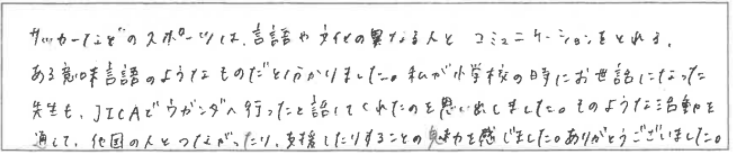 サッカーなどのスポーツは、言語や文化の異なる人とコミュニケーションをとれる、
ある意味言語のようなものだと分かりました。私が小学校の時にお世話になった
先生も、JICAでウガンダへ行ったと話してくれたのを思い出しました。そのような活動を
通して、他国の人とつながったり、支援したりすることの魅力を感じました。ありがとうございました。